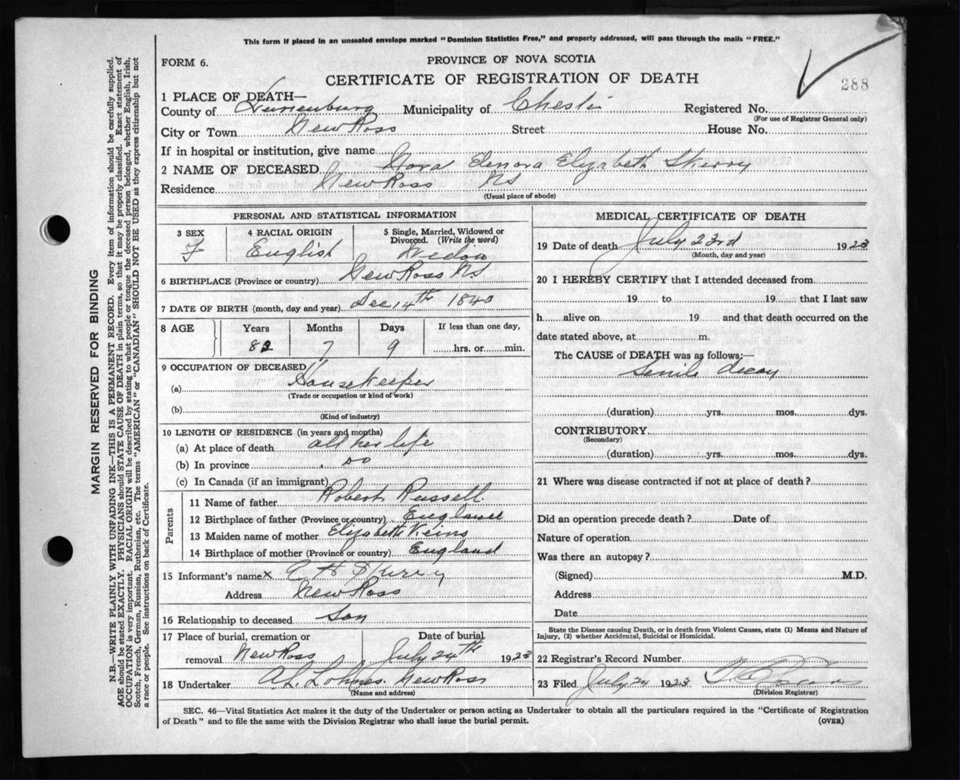 This form if placed in an unsealed envelope marked "Dominion Statistics Free," and properly addressed, will pass through the mails "FREE."
FORM 6.
PROVINCE OF NOVA SCOTIA
CERTIFICATE OF REGISTRATION OF DEATH
288
1 PLACE OF DEATH—
County of Lunenburg Municipality of Chester Registered No.
(For use of Registrar General only)
City or Town New Ross Street House No.
If in hospital or institution, give name
2 NAME OF DECEASED Elenora Elizabeth Skerry
Residence New Ross NS
(Usual place of abode)
PERSONAL AND STATISTICAL INFORMATION
3 SEX F
4 RACIAL ORIGIN English
5 Single, Married, Widowed or Divorced. (Write the word) Widow
6 BIRTHPLACE (Province or country) New Ross NS
7 DATE OF BIRTH (month, day and year) Dec 14th 1840
8 AGE Years Months Days If less than one day,
82 7 9 hrs. or min.
9 OCCUPATION OF DECEASED
(a) Housekeeper
(Trade or occupation or kind of work)
(b)
(Kind of industry)
10 LENGTH OF RESIDENCE (in years and months)
(a) At place of death all her life
(b) In province do
(c) In Canada (if an immigrant)
Parents
11 Name of father Robert Russell
12 Birthplace of father (Province or country) England
13 Maiden name of mother Elizabeth
14 Birthplace of mother (Province or country) England
15 Informant's name x Skerry
Address New Ross
16 Relationship to deceased Son
17 Place of burial, cremation or removal New Ross
Date of burial July 24th 1923
18 Undertaker A.L. Lohnes New Ross
(Name and address)
MEDICAL CERTIFICATE OF DEATH
19 Date of death July 23rd 1923
(Month, day and year)
20 I HEREBY CERTIFY that I attended deceased from
19 to 19 that I last saw
h alive on 19 and that death occurred on the
date stated above, at m.
The CAUSE of DEATH was as follows:—
Senile decay
(duration) yrs. mos. dys.
CONTRIBUTORY
(Secondary)
(duration) yrs. mos. dys.
21 Where was disease contracted if not at place of death?
Did an operation precede death? Date of
Nature of operation
Was there an autopsy?
(Signed) M.D.
Address
Date
State the Disease causing Death, or in death from Violent Causes, state (1) Means and Nature of
Injury, (2) whether Accidental, Suicidal or Homicidal.
22 Registrar's Record Number
23 Filed July 24 1923
(Division Registrar)
SEC. 46—Vital Statistics Act makes it the duty of the Undertaker or person acting as Undertaker to obtain all the particulars required in the "Certificate of Registration
of Death" and to file the same with the Division Registrar who shall issue the burial permit.
(OVER)
MARGIN RESERVED FOR BINDING
N.B.—WRITE PLAINLY WITH UNFADING INK—THIS IS A PERMANENT RECORD. Every item of information should be carefully supplied.
AGE should be stated EXACTLY. PHYSICIANS should STATE CAUSE OF DEATH in plain terms, so that it may be properly classified. Exact statement of
OCCUPATION is very important. RACIAL ORIGIN will be described by stating to what people or tongue the deceased person belonged, whether English, Irish,
Scotch, French, German, Russian, Ruthenian, etc. The terms "AMERICAN" or "CANADIAN" SHOULD NOT BE USED as they express citizenship but not
a race or people. See instructions on back of Certificate.